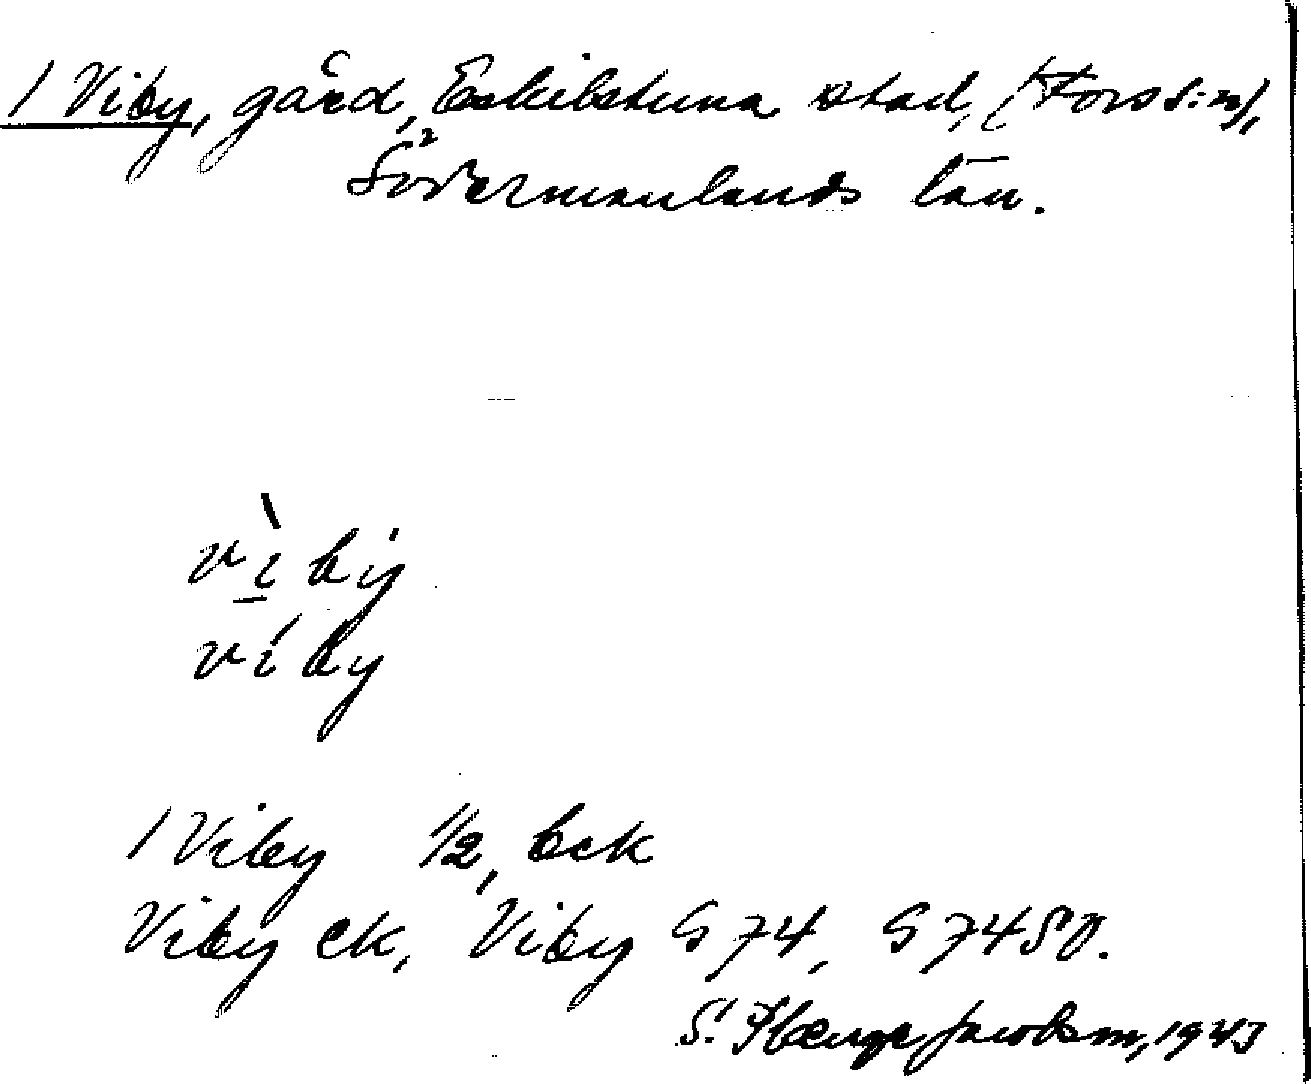 1 Viby, gård, Eskilstuna stad, (Fors s:n),
Södermanlands län.
vìby
víby
1 Viby 1/2, bek
Viby ek, Viby G 74, G 74 SO.
S. 1943